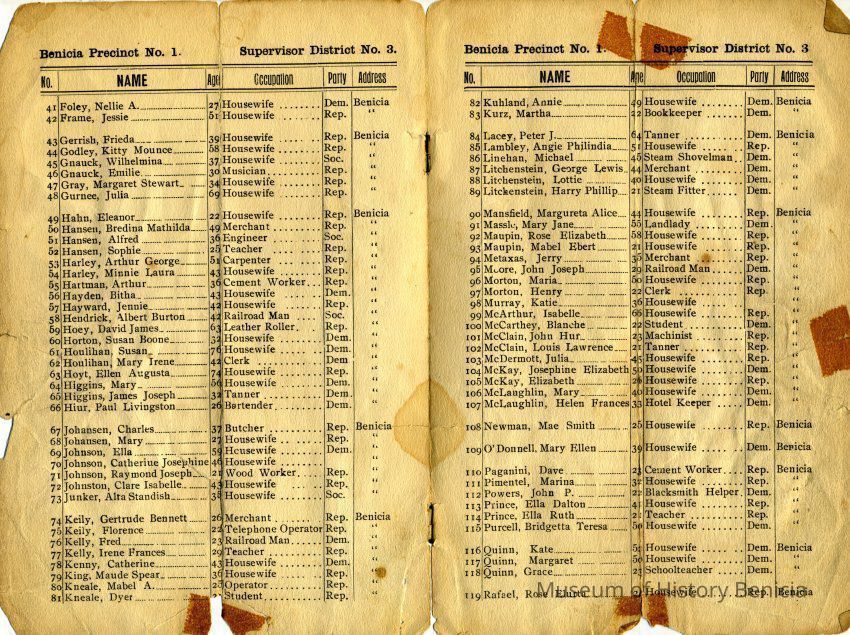 Benicia Precinct No. 1. Supervisor District No. 3.
No. NAME Age Occupation Party Address
41 Foley, Nellie A. 27 Housewife Dem. Benicia
42 Frame, Jessie 51 Housewife Rep. "
43 Gerrish, Frieda 39 Housewife Rep. Benicia
44 Godley, Kitty Mounce 58 Housewife Rep. "
45 Gnauck, Wilhelmina 37 Housewife Soc. "
46 Gnauck, Emilie 30 Musician Rep. "
47 Gray, Margaret Stewart 34 Housewife Rep. "
48 Gurnee, Julia 69 Housewife Rep. "
49 Hahn, Eleanor 22 Housewife Rep. Benicia
50 Hansen, Bredina Mathilda 49 Merchant Rep. "
51 Hansen, Alfred 36 Engineer Soc. "
52 Hansen, Sophie 25 Teacher Rep. "
53 Harley, Arthur George 51 Carpenter Rep. "
54 Harley, Minnie Laura 43 Housewife Rep. "
55 Hartman, Arthur 36 Cement Worker Rep. "
56 Hayden, Bitha 43 Housewife Dem. "
57 Hayward, Jennie 42 Housewife Rep. "
58 Hendrick, Albert Burton 42 Railroad Man Soc. "
59 Hoey, David James 63 Leather Roller Rep. "
60 Horton, Susan Boone 32 Housewife Dem. "
61 Houlihan, Susan 76 Housewife Dem. "
62 Houlihan, Mary Irene 42 Clerk Dem "
63 Hoyt, Ellen Augusta 74 Housewife Rep. "
64 Higgins, Mary 56 Housewife Dem. "
65 Higgins, James Joseph 32 Tanner Dem. "
66 Hiur, Paul Livingston 26 Bartender Dem. "
67 Johansen, Charles 37 Butcher Rep. Benicia
68 Johansen, Mary 27 Housewife Rep. "
69 Johnson, Ella 59 Housewife Dem. "
70 Johnson, Catherine Josephine 46 Housewife "
71 Johnson, Raymond Joseph 21 Wood Worker Rep. "
72 Johnston, Clare Isabelle 43 Housewife Rep. "
73 Junker, Alta Standish 38 Housewife Soc. "
74 Keily, Gertrude Bennett 26 Merchant Rep. Benicia
75 Keily, Florence Telephone Operator Rep. "
76 Kelly, Fred 23 Railroad Man Dem. "
77 Kelly, Irene Frances 29 Teacher Rep. "
78 Kenny, Catherine 43 Housewife Dem. "
79 King, Maude Spear Housewife Rep. "
80 Kneale, Mabel A. Operator Rep. "
81 Kneale, Dyer Student Rep. "
Benicia Precinct No. 1. Supervisor District No. 3
No. NAME Age Occupation Party Address
82 Kuhland, Annie 49 Housewife Dem. Benicia
83 Kurz, Martha 22 Bookkeeper Dem. "
84 Lacey, Peter J. 64 Tanner Dem. Benicia
85 Lambley, Angie Philindia 51 Housewife Rep. "
86 Linehan, Michael 45 Steam Shovelman Dem. "
87 Litchenstein, George Lewis 44 Merchant Dem. "
88 Litchenstein, Lottie 40 Housewife Dem. "
89 Litchenstein, Harry Phillip 21 Steam Fitter Dem. "
90 Mansfield, Margureta Alice 44 Housewife Rep. Benicia
91 Massie, Mary Jane 55 Landlady Dem. "
92 Maupin, Rose Elizabeth 58 Housewife Rep. "
93 Maupin, Mabel Ebert 21 Housewife Rep. "
94 Metaxas, Jerry 35 Merchant Rep. "
95 Moore, John Joseph 29 Railroad Man Dem. "
96 Morton, Maria Housewife Rep. "
97 Morton, Henry 22 Clerk Rep. "
98 Murray, Katie 36 Housewife "
99 McArthur, Isabelle 66 Housewife Rep. "
100 McCarthey, Blanche 22 Student Dem. "
101 McClain, John Hur 23 Machinist Rep. "
102 McClain, Louis Lawrence 21 Tanner Rep. "
103 McDermott, Julia 45 Housewife Rep. "
104 McKay, Josephine Elizabeth 50 Housewife Dem. "
105 McKay, Elizabeth Housewife Rep. "
106 McLaughlin, Mary 40 Housewife Dem. "
107 McLaughlin, Helen Frances 33 Hotel Keeper Dem. "
108 Newman, Mae Smith Housewife Rep. Benicia
109 O'Donnell, Mary Ellen 39 Housewife Dem. Benicia
110 Paganini, Dave 23 Cement Worker Rep. Benicia
111 Pimentel, Marina 32 Housewife Rep. "
112 Powers, John P. 22 Blacksmith Helper Dem. "
113 Prince, Ella Dalton 41 Housewife Rep. "
114 Prince, Ella Ruth 21 Teacher Rep. "
115 Purcell, Bridgetta Teresa Housewife Dem. "
116 Quinn, Kate Housewife Dem. Benicia
117 Quinn, Margaret Housewife Dem. "
118 Quinn, Grace Schoolteacher Dem. "
119 Rafael, Rose Housewife Rep. Benicia
Museum of History Benicia